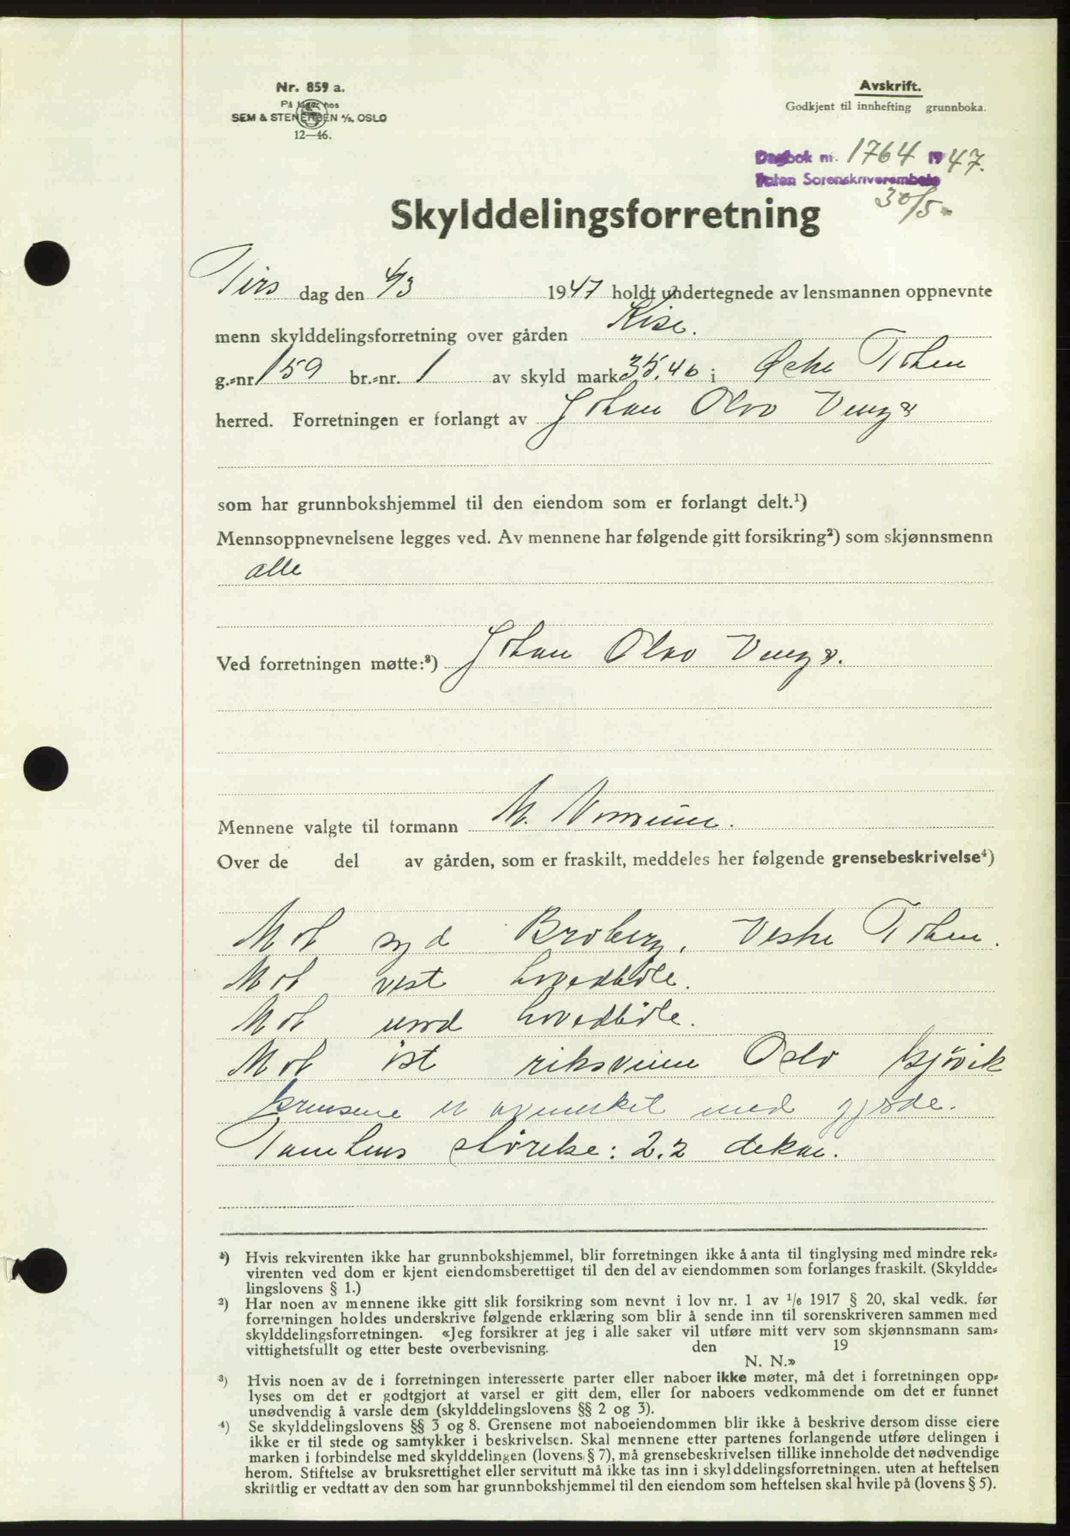 Nr. 859 a.
På lager hos
SEM & STENERSEN A/S, OSLO
12—46.
Avskrift.
Godkjent til innhefting grunnboka.
Dagbok nr. 1764 1947.
Toten Sorenskriverembete
30/5-
Skylddelingsforretning
Tirs dag den 4/3 1947 holdt undertegnede av lensmannen oppnevnte
menn skylddelingsforretning over gården Kise.
g.-nr. 159 br.-nr. 1 av skyld mark 35.46 i Østre Toten
herred. Forretningen er forlangt av Johan Olvo
som har grunnbokshjemmel til den eiendom som er forlangt delt.¹)
Mennsoppnevnelsene legges ved. Av mennene har følgende gitt forsikring²) som skjønnsmenn
alle
Ved forretningen møtte:³) Johan Olvo
Mennene valgte til formann M.
Over de del av gården, som er fraskilt, meddeles her følgende grensebeskrivelse⁴)
Mot syd Broberg, Vestre Toten.
Mot vest hovedbøle.
Mot nord hovedbøle.
Mot øst riksveien Oslo Gjøvik
Grensene er avmerket med gjerde.
Tomtens størelse: 2.2 dekar.
¹) Hvis rekvirenten ikke har grunnbokshjemmel, blir forretningen ikke å anta til tinglysing med mindre rek-
virenten ved dom er kjent eiendomsberettiget til den del av eiendommen som forlanges fraskilt. (Skyldde-
lingslovens § 1.)
²) Har noen av mennene ikke gitt slik forsikring som nevnt i lov nr. 1 av 1/6 1917 § 20, skal vedk. før
forretningen holdes underskrive følgende erklæring som blir å sende inn til sorenskriveren sammen med
skylddelingsforretningen. «Jeg forsikrer at jeg i alle saker vil utføre mitt verv som skjønnsmann sam-
vittighetsfullt og etter beste overbevisning. den 19
N. N.»
³) Hvis noen av de i forretningen interesserte parter eller naboer ikke møter, må det i forretningen opp-
lyses om det er godtgjort at varsel er gitt dem, eller for naboers vedkommende om det er funnet
unødvendig å varsle dem (skylddelingslovens §§ 2 og 3).
⁴) Se skylddelingslovens §§ 3 og 8. Grensene mot naboeiendommen blir ikke å beskrive dersom disse eiere
ikke er til stede og samtykker i beskrivelsen. Skal mennene etter partenes forlangende utføre delingen i
marken i forbindelse med skylddelingen (lovens § 7), må grensebeskrivelsen tillike inneholde det nødvendige
herom. Stiftelse av bruksrettighet eller servitutt må ikke tas inn i skylddelingsforretningen, uten at heftelsen
skriftlig er vedtatt av den som har grunnbokshjemmel til den eiendom som heftelsen skal hvile på (lovens § 5).